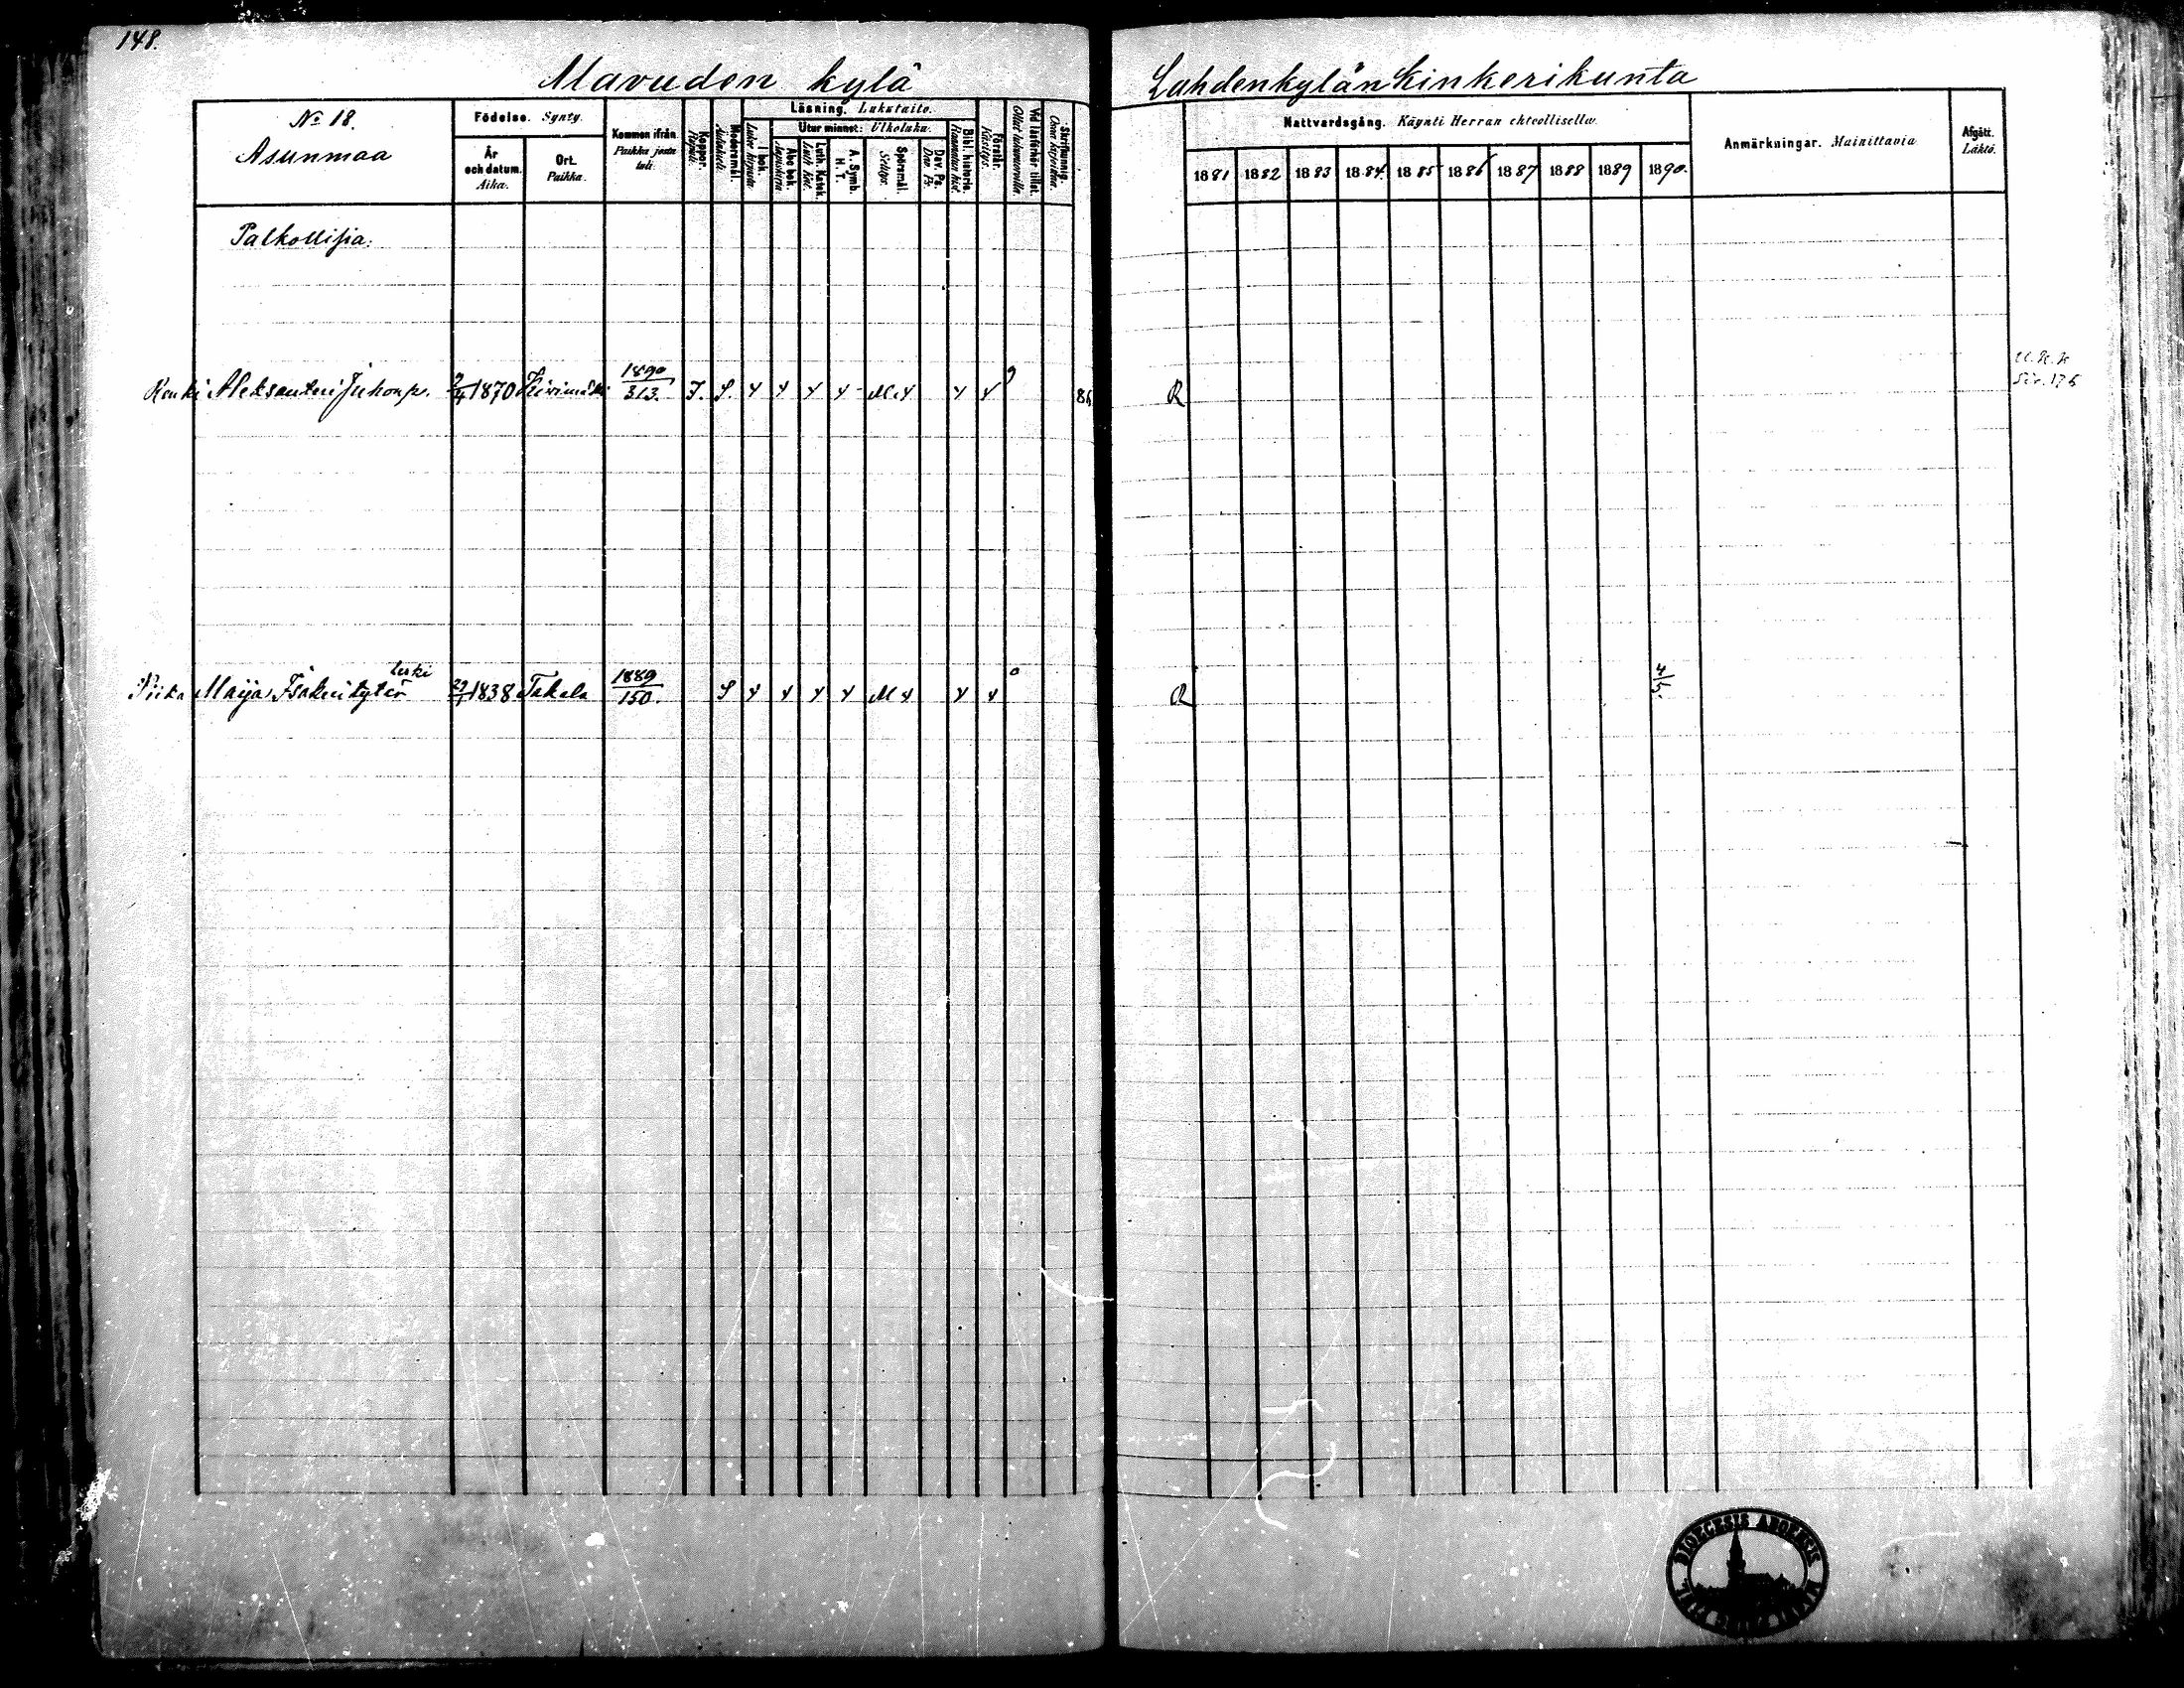 148.
Mavuden kylä
Lahdenkylän kinkerikunta
No 18.
Asunmaa
Födelse. Synty.
År och datum. Aika.
Ort. Paikka.
Kommen ifrån. Paikka josta tuli.
Koppor. Rupuli.
Modersmål.
Läsning. Lukutaito.
I bok. Luku kirjasta
Utur minnet: Ulkoluku.
Abc bok.
Luth. Katek. Luth. Kat.
A. Symb. H. T.
Spörsmål. Selitys.
Dav. Ps. Dav. Ps.
Bibl. historia
Förstår. Käsitys.
Vid läsförhör tillst.
Skrifkunnig.
Nattvardsgång. Käynti Herran ehtoollisella.
1881 1882 1883 1884 1885 1886 1887 1888 1889 1890.
Anmärkningar. Mainittavia
Afgått. Lähtö.
Palkollisia:
Renki Aleksanteri Juhonp. 1870 1890/313. 4 4 4 4 M. 4 4 4 86 R
Leski
Piika Maija Isakintytär 1838 Takala 1889/150. S 4 4 4 4 M 4 4 4 R 4/5.
DIOECESIS ABOENSIS